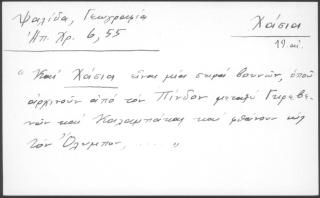 Ψαλίδα, Γεωγραφία
Ἠπ. Χρ. 6, 55
Χάσια
19 αἰ.
"Καί Χάσια εἶναι μία σειρά βουνῶν, ὁποῦ
ἀρχινοῦν ἀπό τόν Πίνδον μεταξύ Γκρεβε-
νῶν καί Καλαμπάκας καί φθάνουν ὡς
τόν Ὄλυμπον, . . . . "